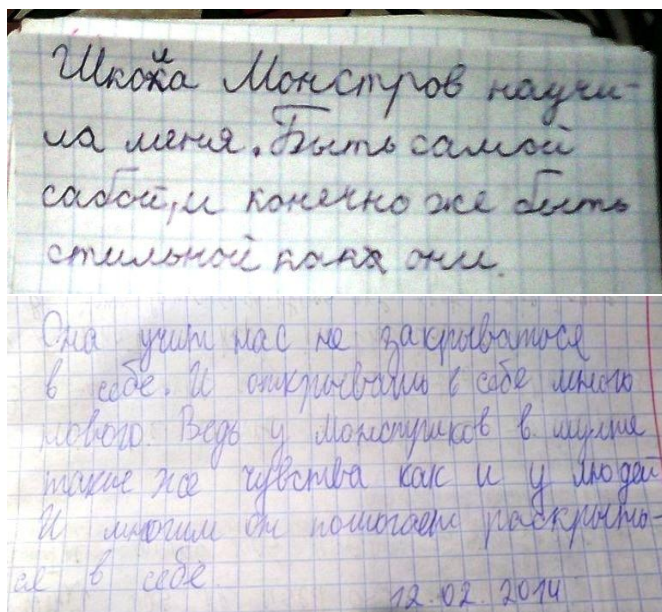 Школа Монстров научи-
ла меня. Быть самой
сабой, и конечно же быть
стильной как они.
Она учит нас не закрываться
в себе. И открывать в себе много
нового. Ведь у Монстриков в мульте
такие же чувства как и у людей
И многим он помогает раскрыть-
ся в себе
12.02.2014